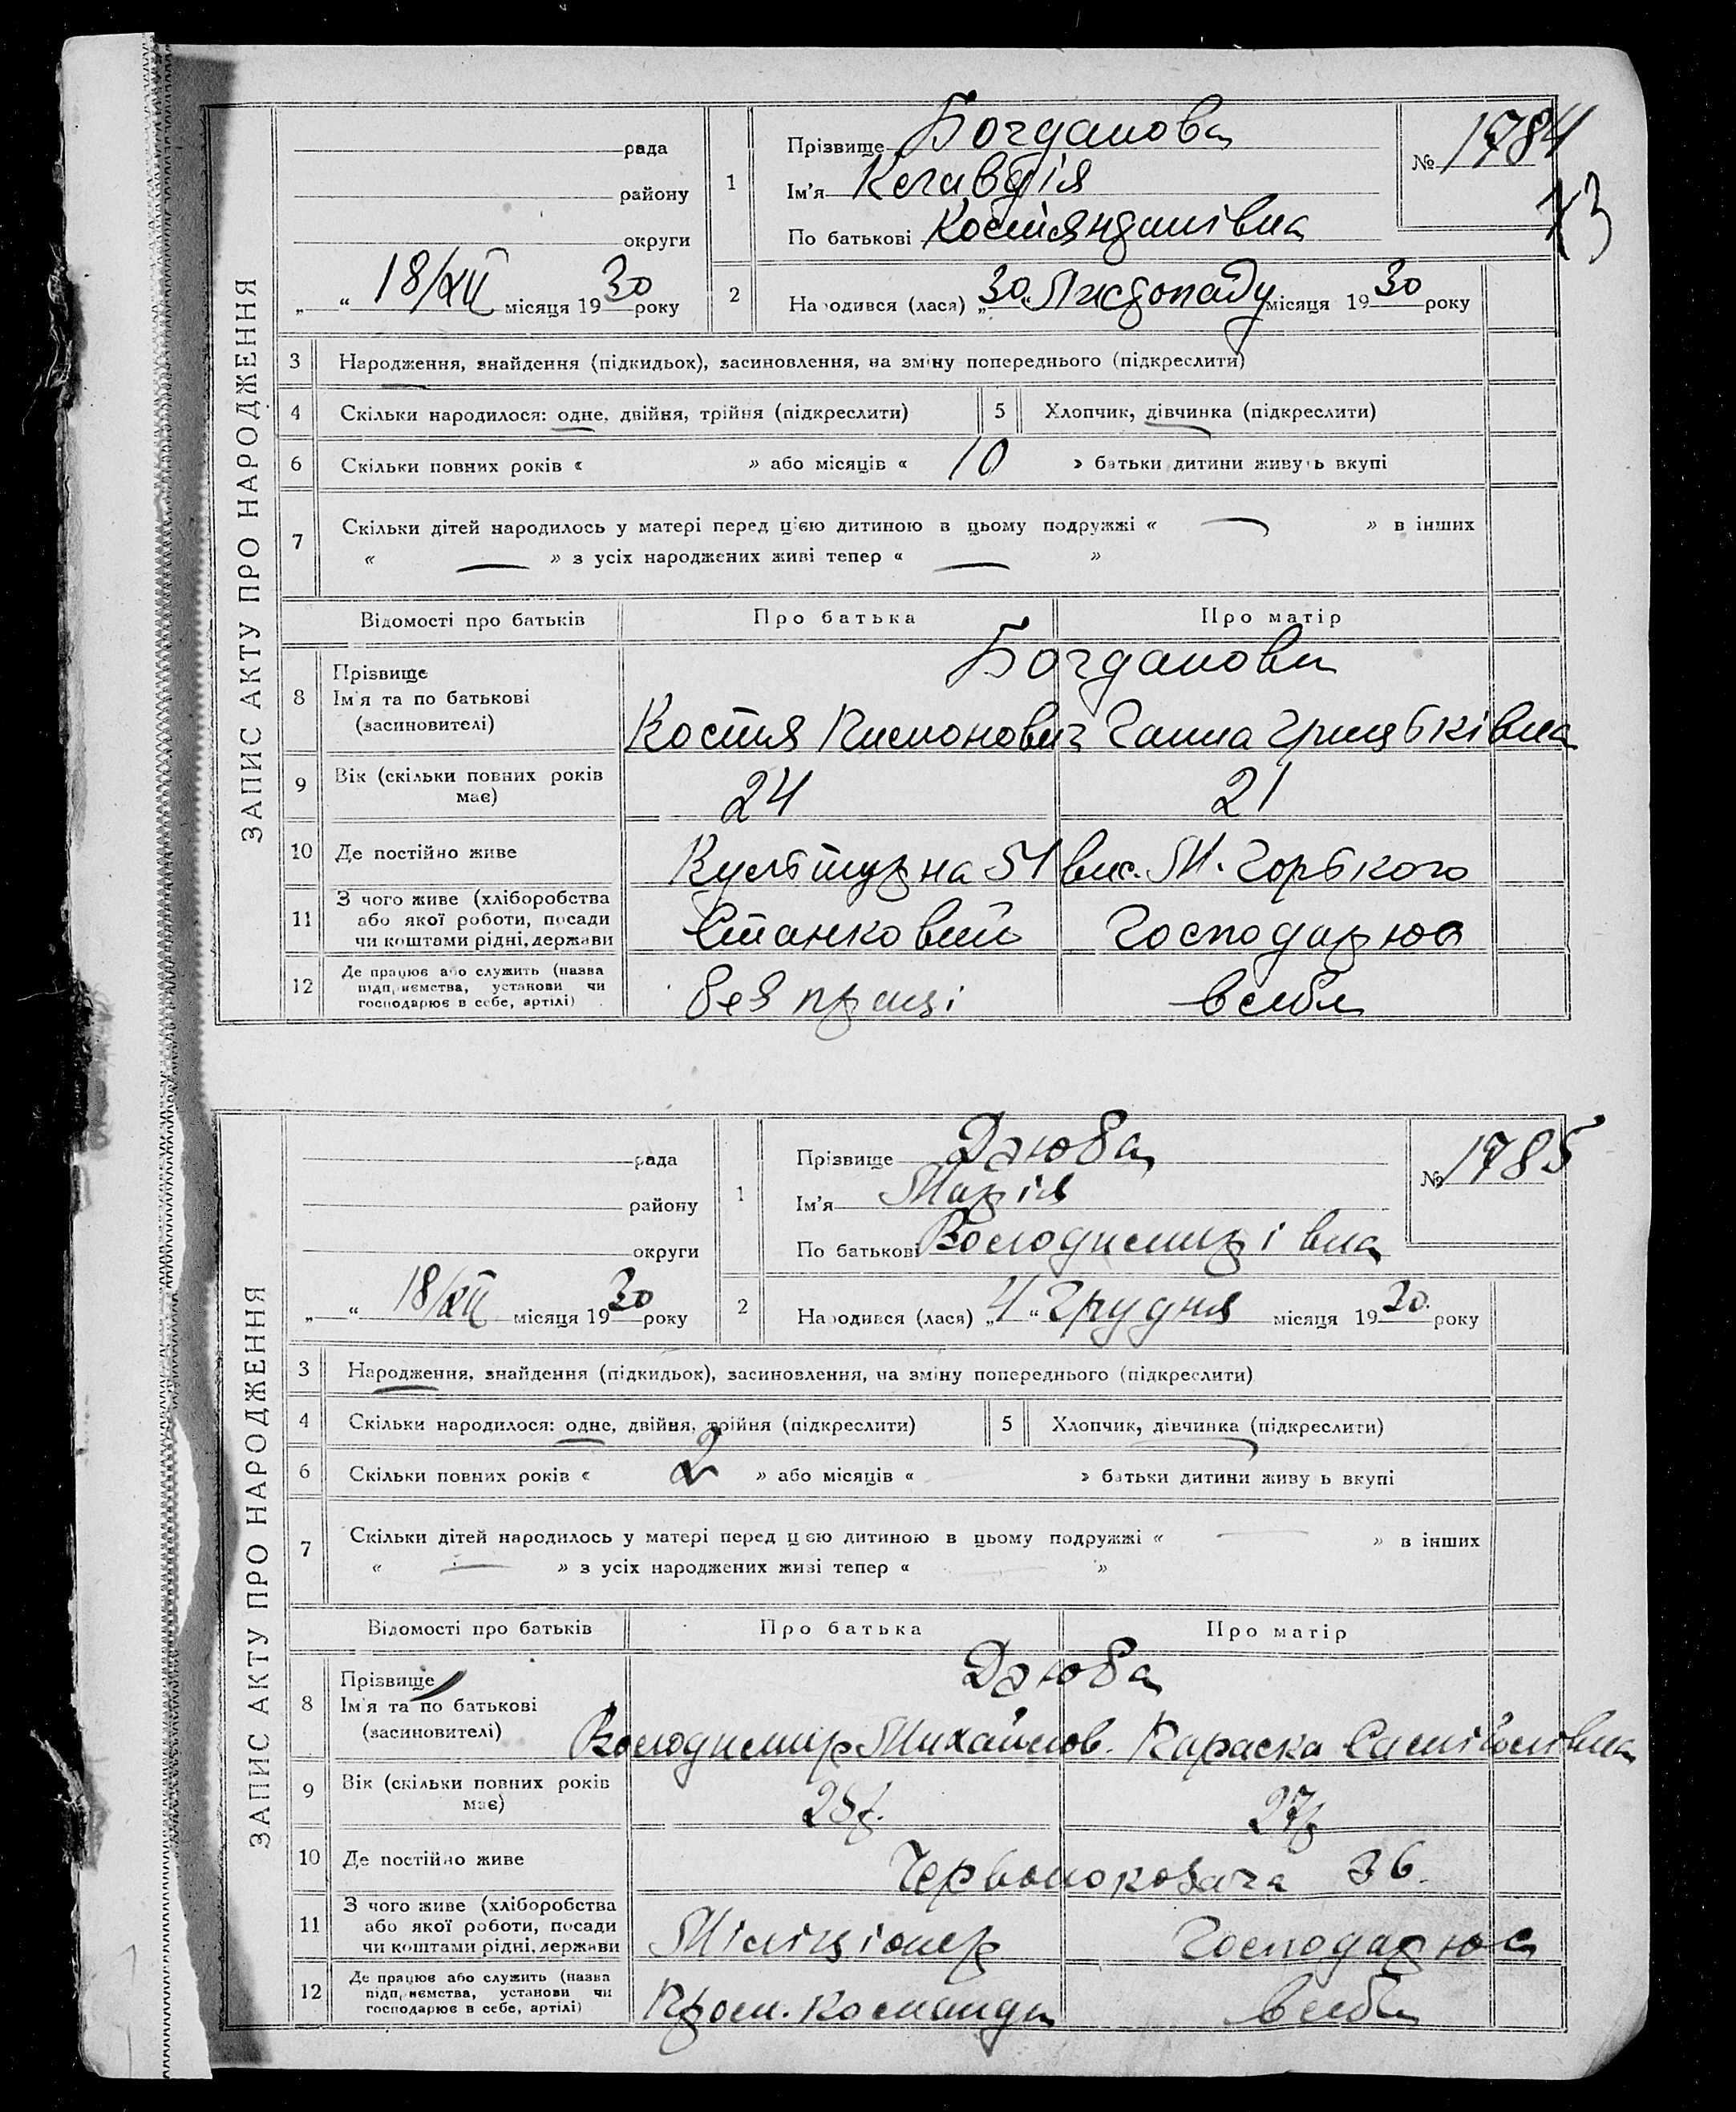 ЗАПИС АКТУ ПРО НАРОДЖЕННЯ
рада
району
округи
„ “ 18/XII місяця 1930 року
1 Прізвище Богданова
Ім'я Клавдія
По батькові Костянтинівна
№ 1784
73
2 Народився (лася) „30“ Листопаду місяця 1930 року
3 Народження, знайдення (підкидьок), засиновлення, на зміну попереднього (підкреслити)
4 Скільки народилося: одне, двійня, трійня (підкреслити) 5 Хлопчик, дівчинка (підкреслити)
6 Скільки повних років « » або місяців « 10 » батьки дитини живуть вкупі
7 Скільки дітей народилось у матері перед цією дитиною в цьому подружжі « — » в інших
« — » з усіх народжених живі тепер « — »
Відомості про батьків Про батька Про матір
8 Прізвище Богданови
Ім'я та по батькові
(засиновителі) Костя Ганна
9 Вік (скільки повних років має) 24 21
10 Де постійно живе Культурна 51 вис. М. Горького
11 З чого живе (хліборобства або якої роботи, посади чи коштами рідні, держави Станковий Господарює
12 Де працює або служить (назва підприємства, установи чи господарює в себе, артілі) без праці в себе
ЗАПИС АКТУ ПРО НАРОДЖЕННЯ
рада
району
округи
„ “ 18/XII місяця 1930 року
1 Прізвище Дзюба
Ім'я Марія
По батькові Володимирівна
№ 1785
2 Народився (лася) „4“ Грудня місяця 1930 року
3 Народження, знайдення (підкидьок), засиновлення, на зміну попереднього (підкреслити)
4 Скільки народилося: одне, двійня, трійня (підкреслити) 5 Хлопчик, дівчинка (підкреслити)
6 Скільки повних років « 2 » або місяців « » батьки дитини живуть вкупі
7 Скільки дітей народилось у матері перед цією дитиною в цьому подружжі « — » в інших
« — » з усіх народжених живі тепер « — »
Відомості про батьків Про батька Про матір
8 Прізвище Дзюба
Ім'я та по батькові
(засиновителі) Володимир Михайлов. Параска
9 Вік (скільки повних років має) 27р
10 Де постійно живе 36.
11 З чого живе (хліборобства або якої роботи, посади чи коштами рідні, держави Міліціонер Господарює
12 Де працює або служить (назва підприємства, установи чи господарює в себе, артілі) Пром. команди в себе